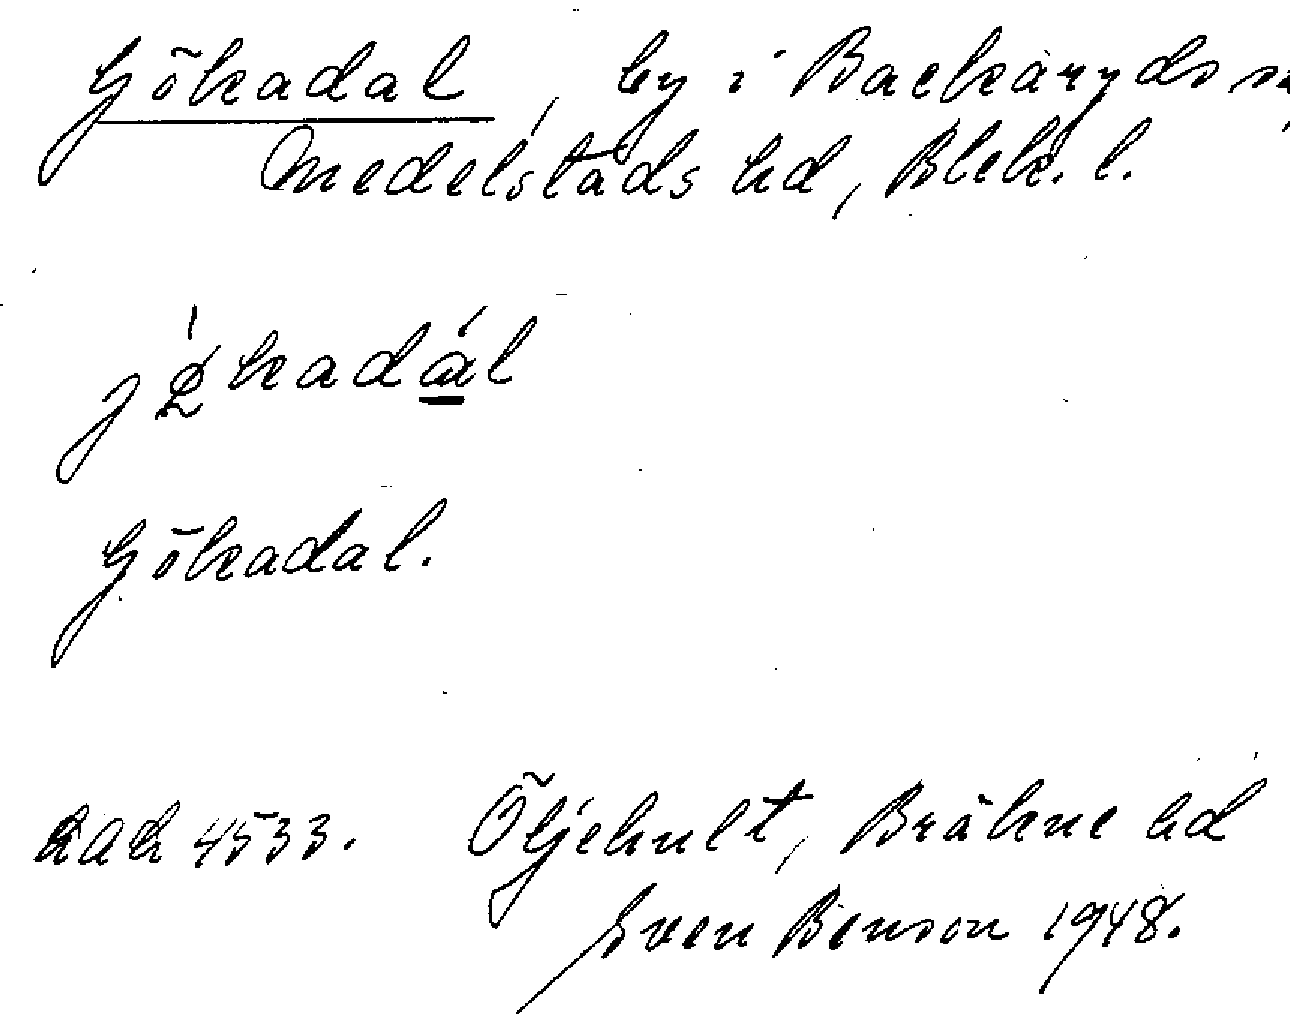 Gökadal, by i Backaryds sn,
Medelstads hd, Blek. l.
kadál
Gökadal.
LAL 4533. Öljehult, Bräkne hd
Sven Benson 1948.